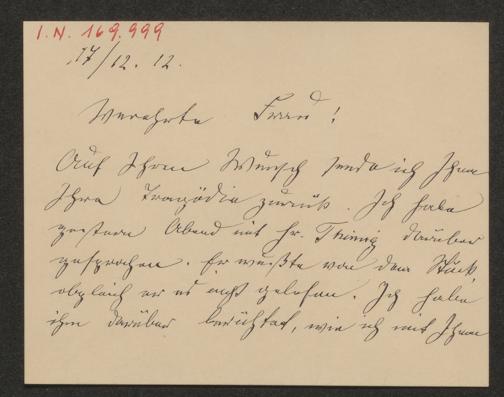 I.N. 169.999
17/12. 12.
Verehrte Frau!
Auf Ihren Wunsch sende ich Ihnen
Ihre Tragödie zurück. Ich habe
gestern Abend mit Hr. Thimig darüber
gesprochen. Er wußte von dem Stück,
obgleich er es nicht gelesen. Ich habe
ihm darüber berichtet, wie ich mit Ihnen